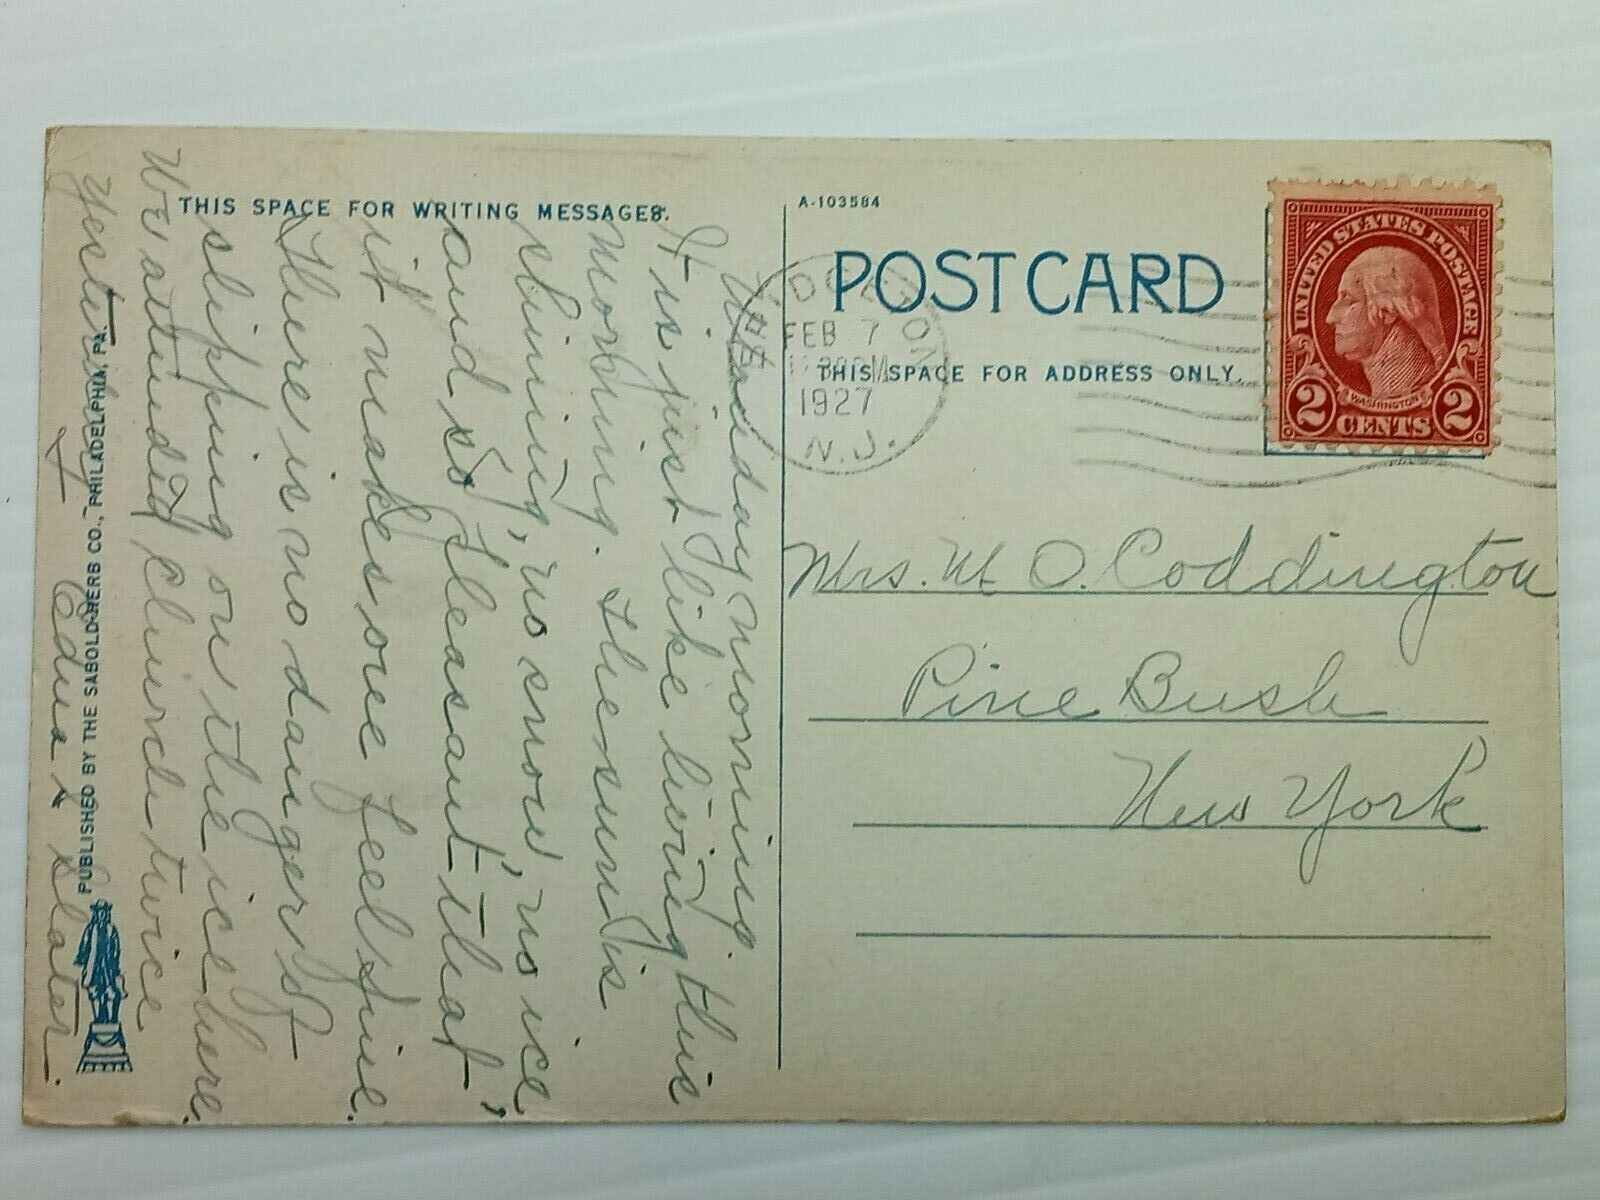 THIS SPACE FOR WRITING MESSAGES.
Monday Morning.
It is just like living this
morning. The sun is
shining, no snow, no ice,
and so pleasant that
it makes one feel fine.
There is no danger of
slipping on the ice here.
We attended church twice
yesterday.
Edna L Slater.
PUBLISHED BY THE SABOLD-HERB CO., PHILADELPHIA, PA.
A-103584
POST CARD
THIS SPACE FOR ADDRESS ONLY.
FEB 7
1927
N.J.
UNITED STATES POSTAGE
WASHINGTON
2 CENTS 2
Mrs. M O. Coddington
Pine Bush
New York